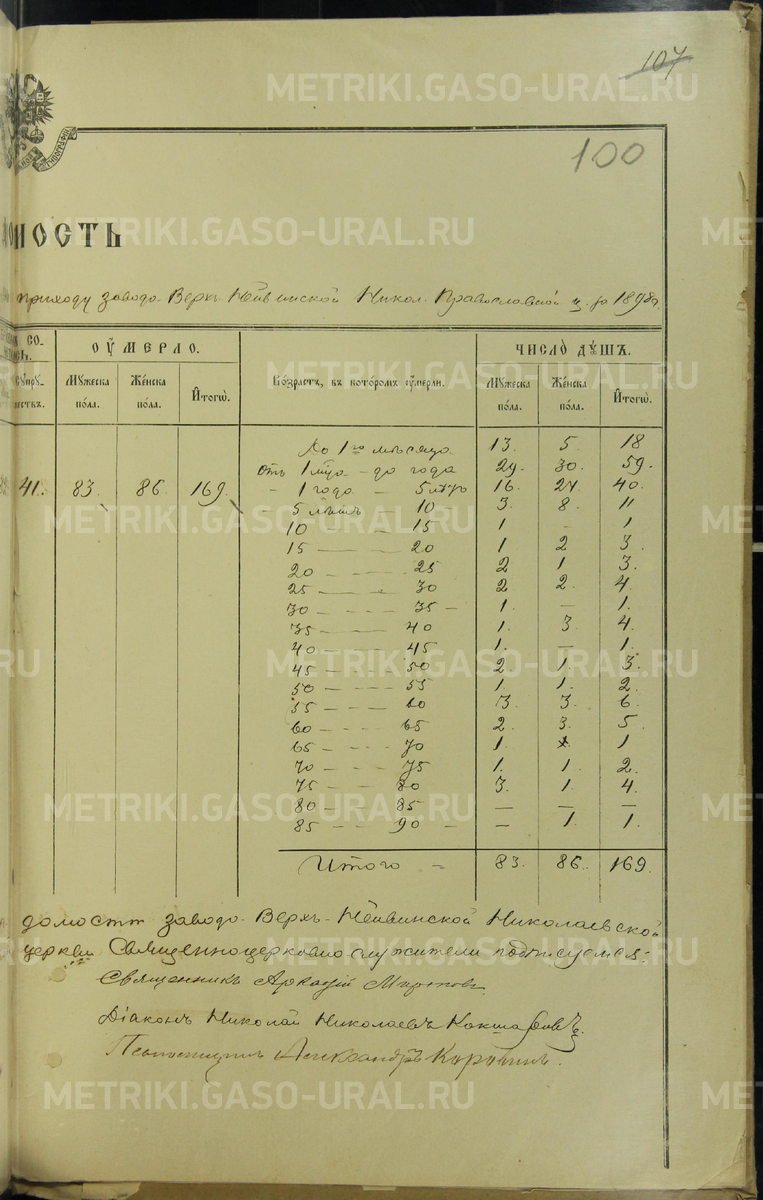 107
100
МОСТЬ
приходу заводо-Верх-Нейвинской Никол. Православной ц. за 1898 г.
СО-
Супру-
жествъ.
ОУМЕРЛО.
Мужеска пола.
Женска пола.
Итогѡ.
Возрастъ, въ которомъ оумерли.
ЧИСЛО ДУШЪ.
Мужеска пола.
Женска пола.
Итогѡ.
41. 83. 86. 169.
До 1го мѣсяца 13. 5. 18
отъ 1 м-ца - до года 29. 30. 59.
- 1 года - 5 лѣтъ 16. 24. 40.
- 5 лѣтъ - 10 - 3. 8. 11
10 - 15 1 - 1
15 - 20 1 2 3.
20 - 25 2 1 3.
25 - 30 2 2. 4.
30 - 35 - 1. - 1.
35 - 40 1. 3 4.
40 - 45 1. - 1.
45 - 50 2 1. 3.
50 - 55 1. 1. 2.
55 - 60 3. 3. 6.
60 - 65 2. 3. 5.
65 - 70 1. 1
70 - 75 1. 1. 2.
75 - 80 3. 1. 4.
80 - 85 - - -
85 - 90 - - 1. 1.
Итого - 83. 86. 169.
домости заводо-Верхъ-Нейвинской Николаевской
церкви Священноцерковнослужители подписуемся:
Священникъ Аркадій
Діаконъ Николай Николаевъ Кокшаровъ.
Псаломщикъ Александръ
METRIKI.GASO-URAL.RU